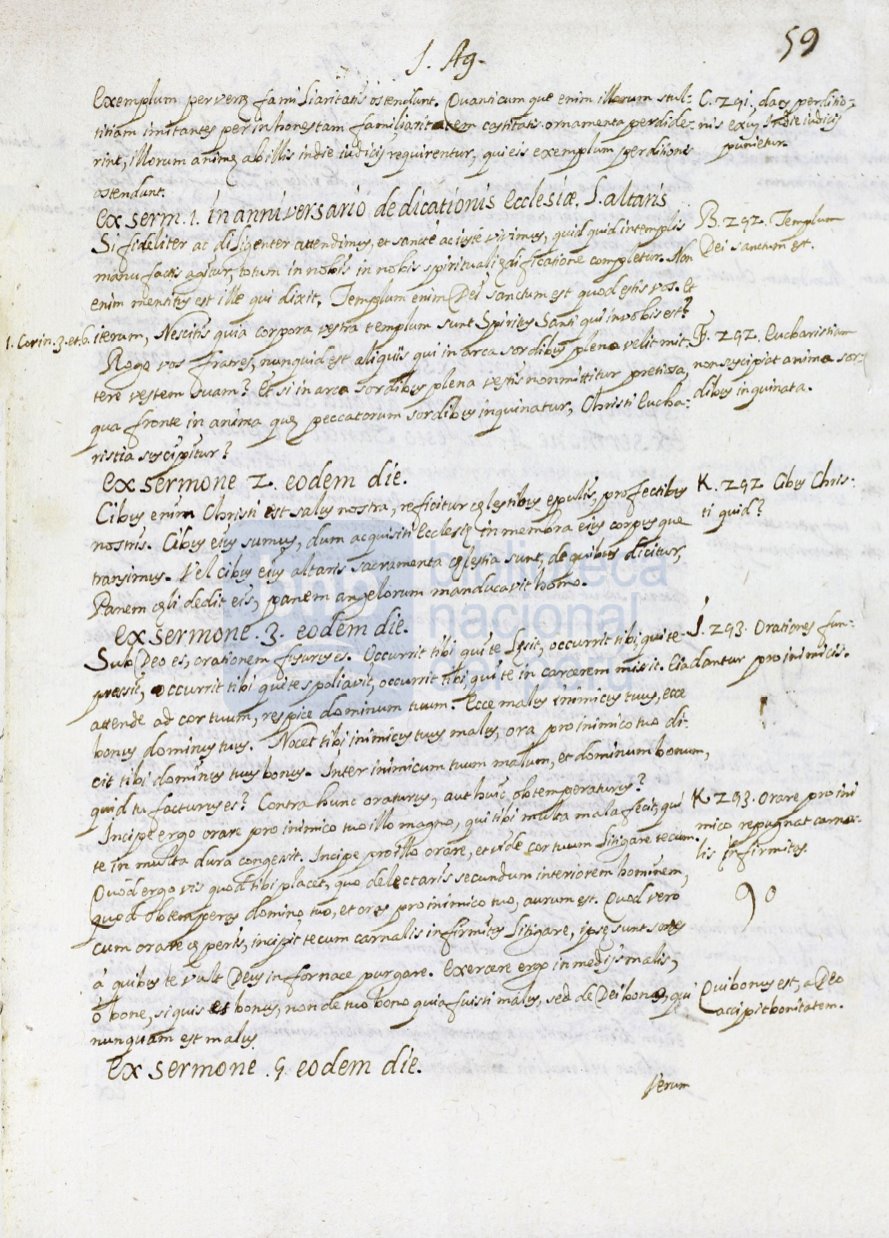 S. Ag.
59
Exemplum perverę familiaritatis ostendunt. Quanicumque enim illorum stul-
titiam imitantes per inhonestam familiaritatem castitatis ornamenta perdide-
rint, illorum animę ab illis in die iudicij requirentur, qui eis exemplum perditionis
ostendunt.
C. 291. dans perditio-
nis exụ̃ in die iudicij
punietur.
Ex serm. 1. in anniversario dedicationis Ecclesiæ, S. altaris
Si fideliter ac diligenter attendimus, et sancte ac iuste vivimus, quidquid in templis
manufactis agitur, totum in nobis in nobis spirituali ędificatione completur. Non
enim mentitus est ille qui dixit, Templum enim Dei sanctum est quod estis vos. et
iterum, Nescitis quia corpora vestra templum sunt Spiritus Sancti qui in vobis est?
B. 292. Templum
Dei sanctum est.
1. Corin. 3. et 6.
Rogo vos fratres, nunquid est aliquis qui in arca sordibus plena velit mit-
tere vestem suam? Et si in arca sordibus plena vestis non mittitur pretiosa,
qua fronte in anima quę peccatorum sordibus inquinatur, Christi Eucha-
ristia suscipitur?
F. 292. Eucharistiam
non suscipiat anima sor-
dibus inquinata.
Ex sermone 2. eodem die.
Cibus enim Christi est salus nostra, reficitur cęlestibus epulis, profectibus
nostris. Cibus eius sumus, dum acquisiti Ecclesię in membra eius corpusque
transimus. Vel cibus eius altaris sacramenta cęlestia sunt, de quibus dicitur,
Panem cęli dedit eis, panem angelorum manducavit homo.
K. 292 Cibus Chris-
ti quid?
Ex sermone .3. eodem die.
Sub Deo es, orationem fusurus es. Occurrit tibi qui te lęsit, occurrit tibi qui te
pressit, occurrit tibi qui te spoliavit, occurrit tibi qui te in carcerem misit. Ecce
attende ad cor tuum, respice dominum tuum. Ecce malus inimicus tuus, ecce
bonus dominus tuus. Nocet tibi inimicus tuus malus, ora pro inimico tuo di-
cit tibi dominus tuus bonus. Inter inimicum tuum malum, et dominum bonum,
quid tu facturus es? Contra hunc oraturus, aut huic obtemperaturus?
J. 293. Orationes fun-
dantur pro inimicis.
Incipe ergo orare pro inimico tuo illo magno, qui tibi multa mala fecit, qui
te in multa dura congessit. Incipe pro illo orare, et vide cor tuum litigare tecum.
Quod ergo vis quod tibi placet, quo delectaris secundum interiorem hominem,
quod obtemperas domino tuo, et oras pro inimico tuo, aurum est. Quod vero
cum orare cęperis, incipit tecum carnalis infirmitas litigare, ipsę sunt sordes
à quibus te vult Deus in fornace purgare. Exercere ergo in medijs malis,
ò bone, si quis es bonus, non de tuo bono quia fuisti malus, sed de Dei bono, qui
nunquam est malus
K. 293. Orare pro ini
mico repugnat carna-
lis infirmitas.
90
Qui bonus est, a Deo
accipit bonitatem.
Ex sermone .4. eodem die.
serum
bnp
biblioteca
nacional
del perú